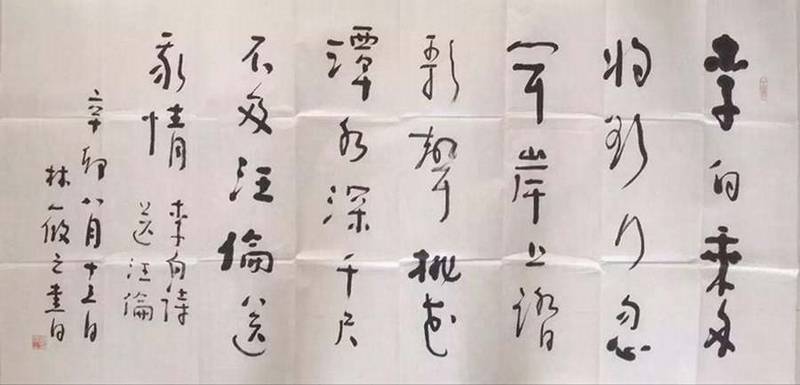 李白乘舟
将欲行忽
聞岸上踏
歌聲桃花
潭水深千尺
不及汪倫送
我情
李白詩
送汪倫
辛卯八月十五日
林筱之書